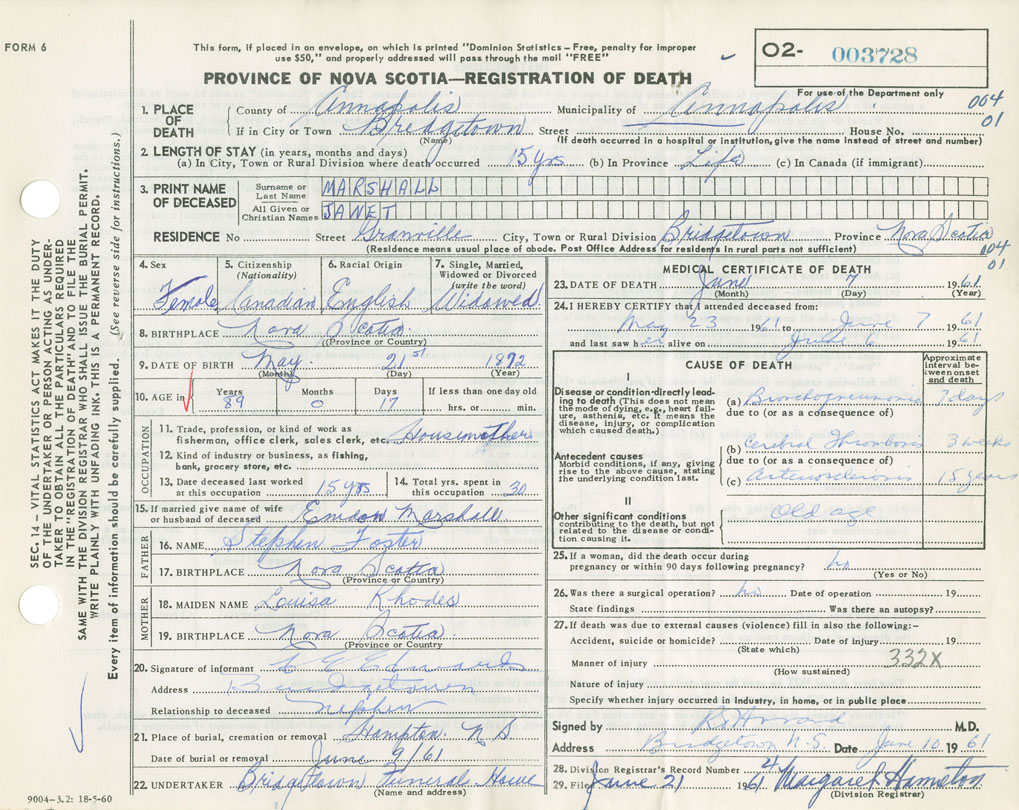 FORM 6
This form, if placed in an envelope, on which is printed "Dominion Statistics – Free, penalty for improper
use $50," and properly addressed will pass through the mail "FREE"
O2- 003728
For use of the Department only
PROVINCE OF NOVA SCOTIA—REGISTRATION OF DEATH
004
01
1. PLACE OF DEATH County of Annapolis Municipality of Annapolis
If in City or Town Bridgetown Street House No.
(Name) (If death occurred in a hospital or institution, give the name instead of street and number)
2. LENGTH OF STAY (in years, months and days)
(a) In City, Town or Rural Division where death occurred 15 yrs (b) In Province Life (c) In Canada (if immigrant)
3. PRINT NAME OF DECEASED Surname or Last Name MARSHALL
All Given or Christian Names JANET
RESIDENCE No Street Granville City, Town or Rural Division Bridgetown Province Nova Scotia
(Residence means usual place of abode. Post Office Address for residents in rural parts not sufficient)
004
01
4. Sex 5. Citizenship (Nationality) 6. Racial Origin 7. Single, Married, Widowed or Divorced (write the word)
Female Canadian English Widowed
8. BIRTHPLACE Nova Scotia
(Province or Country)
9. DATE OF BIRTH May 21st 1872
(Month) (Day) (Year)
10. AGE in Years Months Days If less than one day old
89 0 17 hrs. or min.
OCCUPATION
11. Trade, profession, or kind of work as
fisherman, office clerk, sales clerk, etc. Housemother
12. Kind of industry or business, as fishing,
bank, grocery store, etc.
13. Date deceased last worked at this occupation 15 yrs 14. Total yrs. spent in this occupation 30
15. If married give name of wife
or husband of deceased Marshall
FATHER
16. NAME Stephen Foster
17. BIRTHPLACE Nova Scotia
(Province or Country)
MOTHER
18. MAIDEN NAME Louisa Rhodes
19. BIRTHPLACE Nova Scotia
(Province or Country)
20. Signature of informant E Edwards
Address Bridgetown
Relationship to deceased nephew
21. Place of burial, cremation or removal Hampton N S
Date of burial or removal June 9/61
22. UNDERTAKER Bridgetown Funeral Home
(Name and address)
9004-3.2: 18-5-60
MEDICAL CERTIFICATE OF DEATH
23. DATE OF DEATH June 7 1961
(Month) (Day) (Year)
24. I HEREBY CERTIFY that I attended deceased from:
May 23 1961 to June 7 1961
and last saw her alive on June 6 1961
CAUSE OF DEATH
Approximate interval between onset and death
I
Disease or condition directly leading to death (This does not mean the mode of dying, e.g., heart failure, asthenia, etc. It means the disease, injury, or complication which caused death.)
(a) Bronchopneumonia 7 days
due to (or as a consequence of)
Antecedent causes
Morbid conditions, if any, giving rise to the above cause, stating the underlying condition last.
(b) Cerebral Thrombosis 3 weeks
due to (or as a consequence of)
(c) Arteriosclerosis 15 years
II
Other significant conditions
contributing to the death, but not related to the disease or condition causing it.
Old age
25. If a woman, did the death occur during
pregnancy or within 90 days following pregnancy? no
(Yes or No)
26. Was there a surgical operation? no Date of operation 19
State findings Was there an autopsy?
27. If death was due to external causes (violence) fill in also the following:–
Accident, suicide or homicide? Date of injury 19
(State which)
Manner of injury 332X
(How sustained)
Nature of injury
Specify whether injury occurred in industry, in home, or in public place
Signed by M.D.
Address Bridgetown N.S. Date June 10 1961
28. Division Registrar's Record Number 4
29. Filed June 21 1961 Margaret Hamilton
(Division Registrar)
SEC. 14 – VITAL STATISTICS ACT MAKES IT THE DUTY
OF THE UNDERTAKER OR PERSON ACTING AS UNDER-
TAKER TO OBTAIN ALL THE PARTICULARS REQUIRED
IN THE "REGISTRATION OF DEATH" AND TO FILE THE
SAME WITH THE DIVISION REGISTRAR WHO SHALL ISSUE THE BURIAL PERMIT.
WRITE PLAINLY WITH UNFADING INK. THIS IS A PERMANENT RECORD.
Every item of information should be carefully supplied. (See reverse side for instructions.)